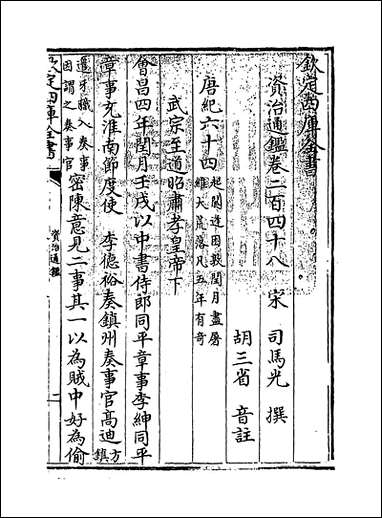 欽定四庫全書
資治通鑑卷二百四十八
宋 司馬光 撰
胡三省 音註
唐紀六十四
起閼逢困敦閏月盡屠
維大荒落凡五年有奇
武宗至道昭肅孝皇帝下
會昌四年閏月壬戌以中書侍郎同平章事李紳同平
章事充淮南節度使 李德裕奏鎮州奏事官高迪
方
鎮
遣牙職入奏事
因謂之奏事官
密陳意見二事其一以為賊中好為偷
欽定四庫全書
資治通鑑